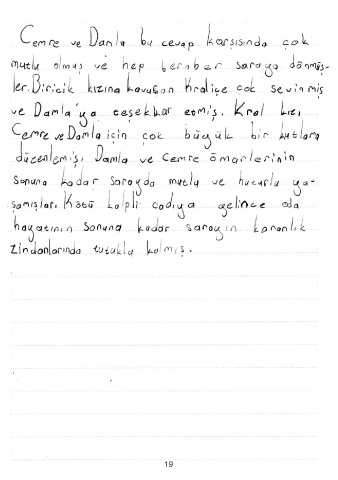 Cemre ve Damla bu cevap karşısında çok
mutlu olmuş ve hep beraber saraya dönmüş-
ler. Biricik kızına kavuşan Kraliçe çok sevinmiş
ve Damla'ya teşekkür etmiş. Kral kızı
Cemre ve Damla için çok büyük bir kutlama
düzenlemiş. Damla ve Cemre ömürlerinin
sonuna kadar sarayda mutlu ve huzurlu ya-
şamışlar. Kötü kalpli cadıya gelince o da
hayatının sonuna kadar sarayın karanlık
zindanlarında tutuklu kalmış.
19